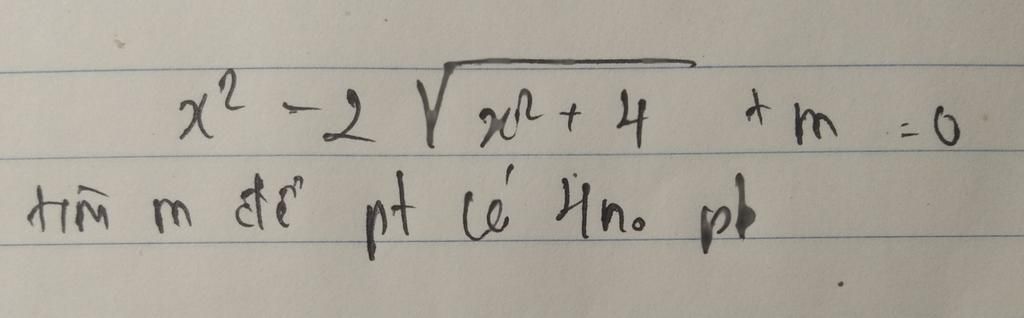 x² - 2 √(x² + 4) + m = 0
tìm m để pt có 4 no pb